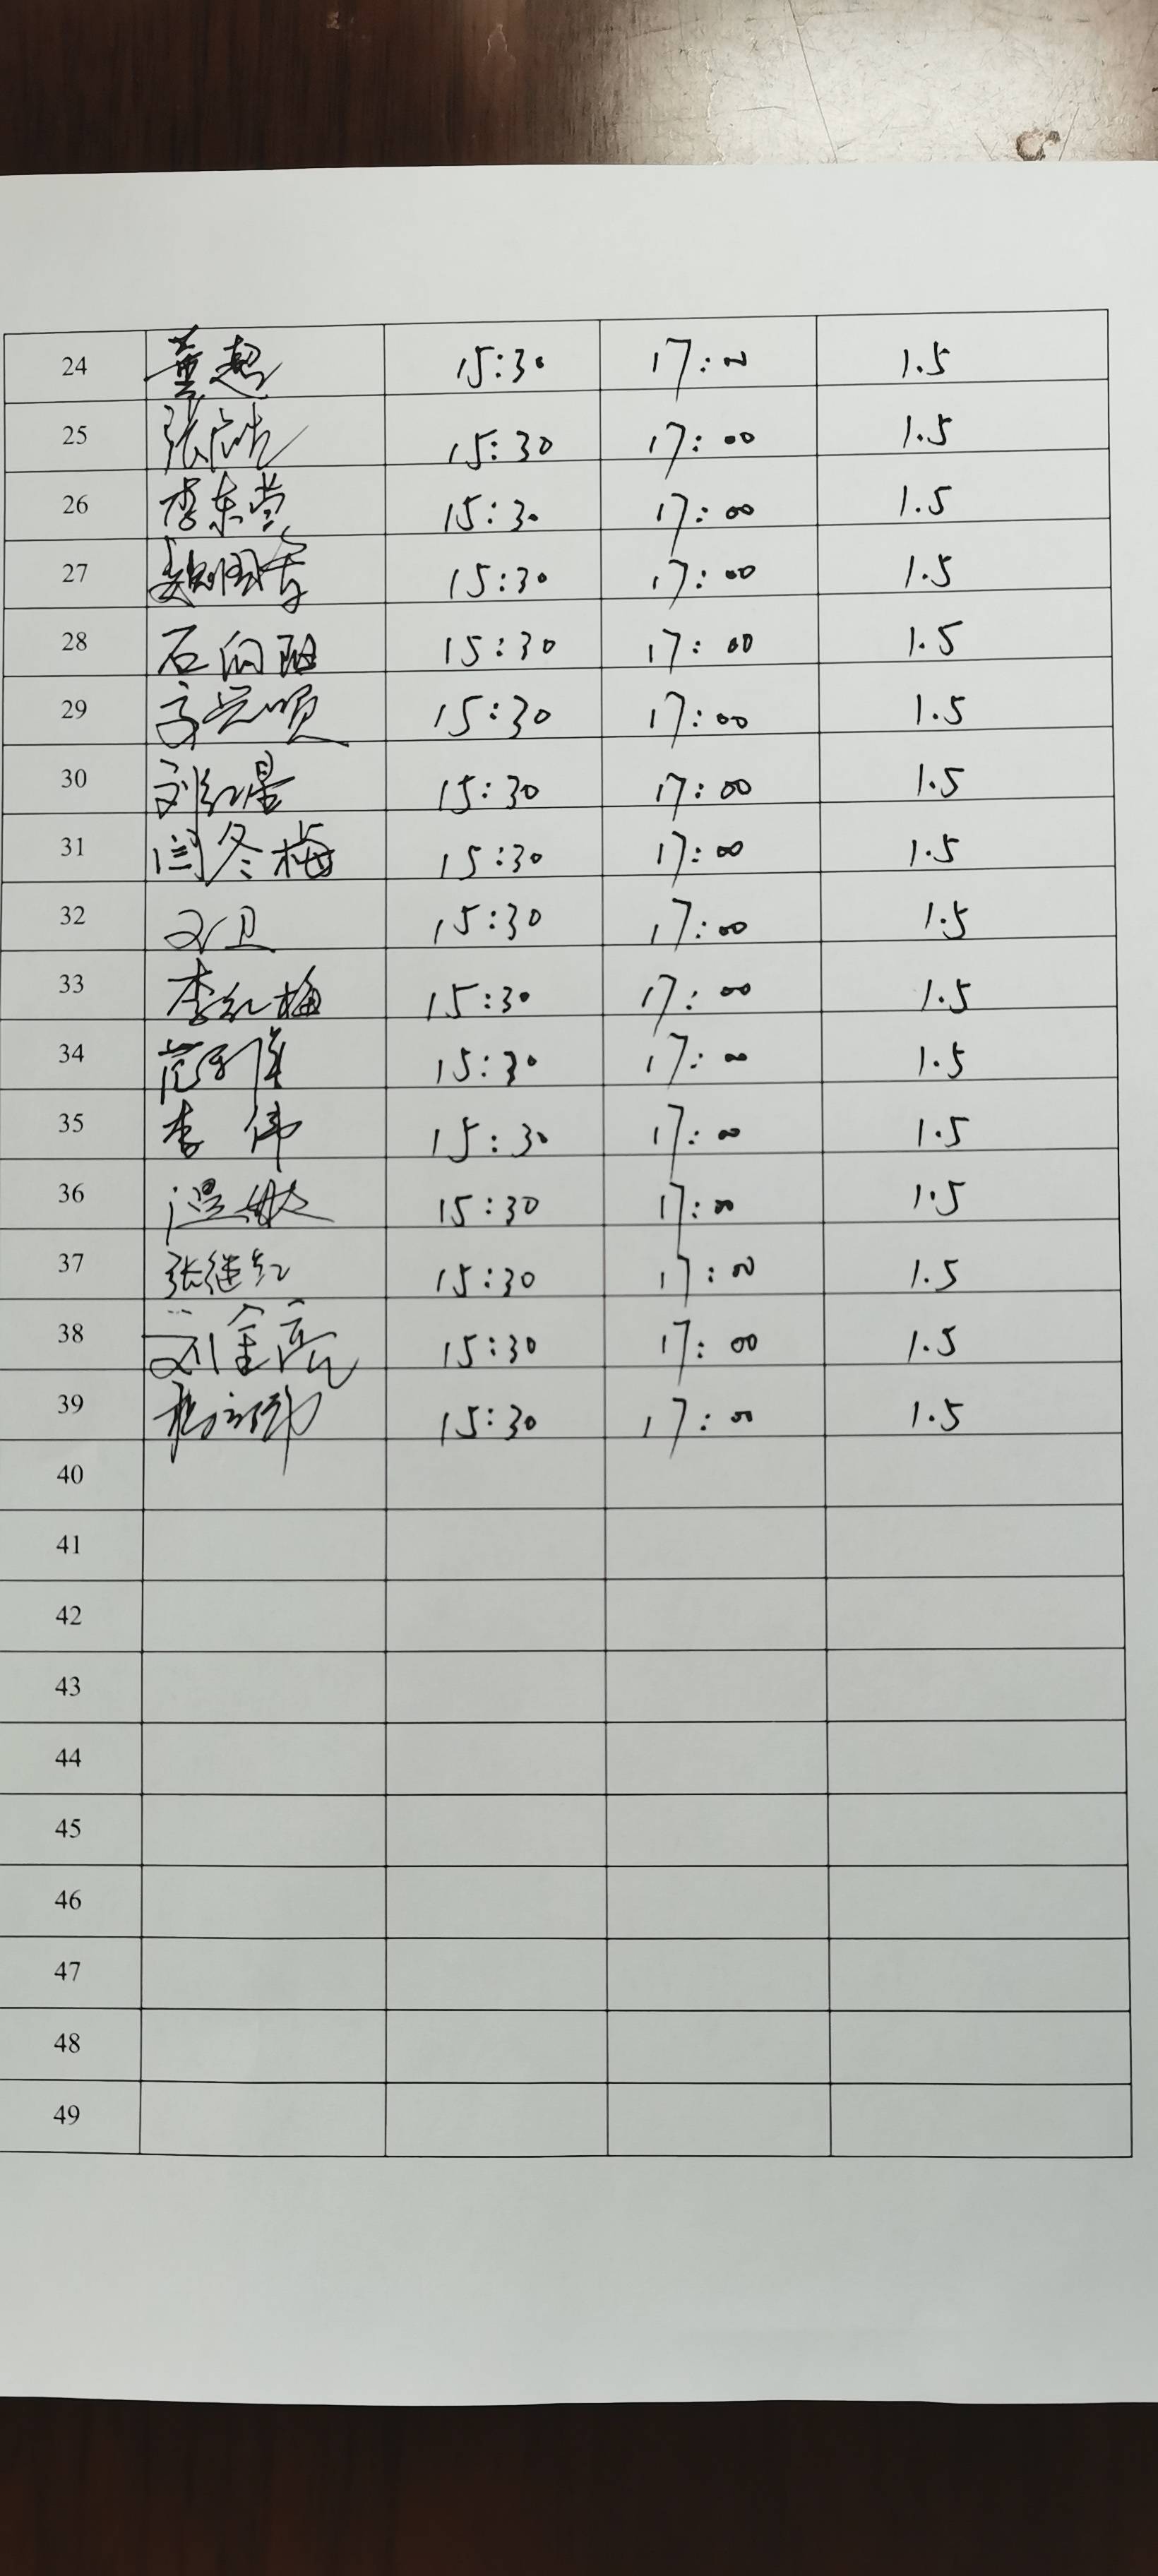 24 董超 15:30 17:00 1.5
25 张 15:30 17:00 1.5
26 李东莹 15:30 17:00 1.5
27 魏国香 15:30 17:00 1.5
28 石向阳 15:30 17:00 1.5
29 高兴顺 15:30 17:00 1.5
30 刘红星 15:30 17:00 1.5
31 闫冬梅 15:30 17:00 1.5
32 文卫 15:30 17:00 1.5
33 李红梅 15:30 17:00 1.5
34 范 15:30 17:00 1.5
35 李伟 15:30 17:00 1.5
36 温敏 15:30 17:00 1.5
37 张继红 15:30 17:00 1.5
38 刘金亮 15:30 17:00 1.5
39 15:30 17:00 1.5
40
41
42
43
44
45
46
47
48
49